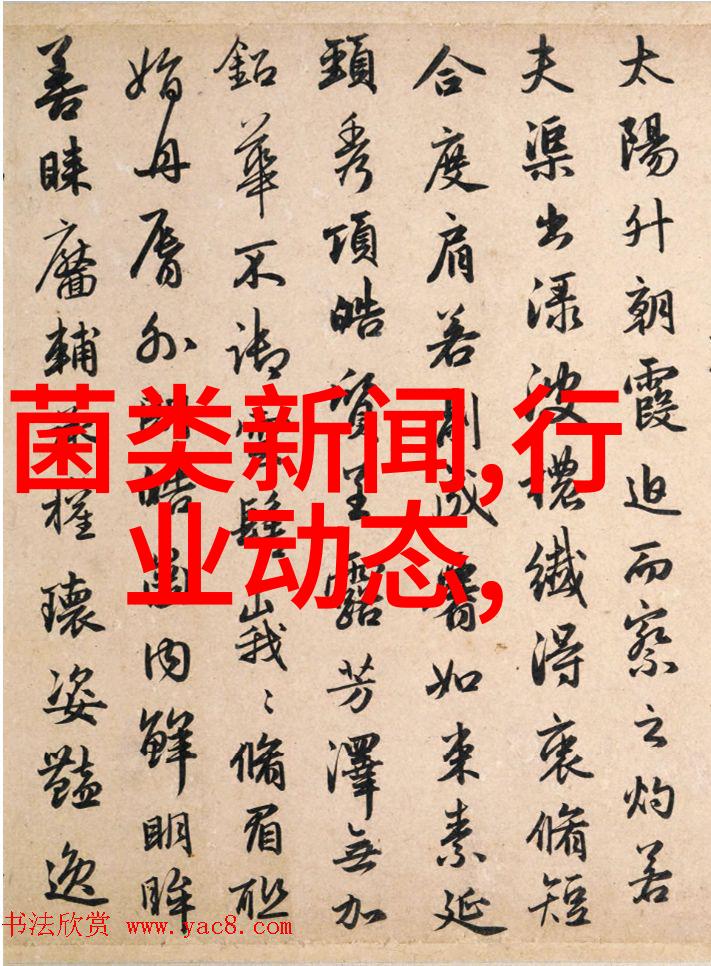 太陽升朝霞迫而察之灼若
夫渠出渌波穠纖得衷脩短
合度肩若削成腰如束素延
頸秀項皓質呈露芳澤無加
鉛華不御雲髻峩〻脩眉聯
娟丹脣外朗皓齒内鮮明眸
善睞靨輔承權瓌姿豔逸
菌类新闻,行
业动态,
书法欣赏 www.yac8.com